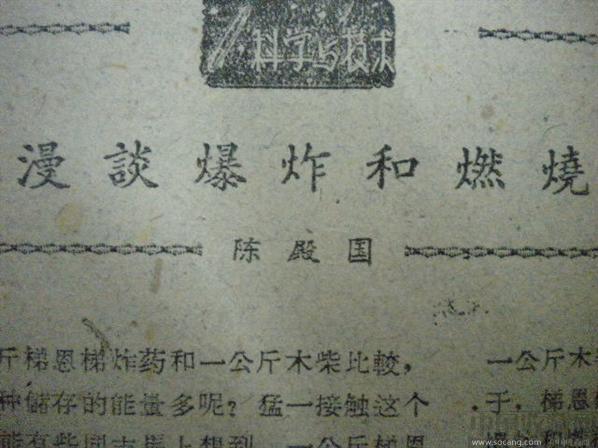 科学与技术
漫談爆炸和燃燒
陈殿国
斤梯恩梯炸药和一公斤木柴比較，
种儲存的能量多呢？猛一接触这个
能有些同志馬上想到，一公斤梯恩
一公斤木
于，梯恩
www.socang.com